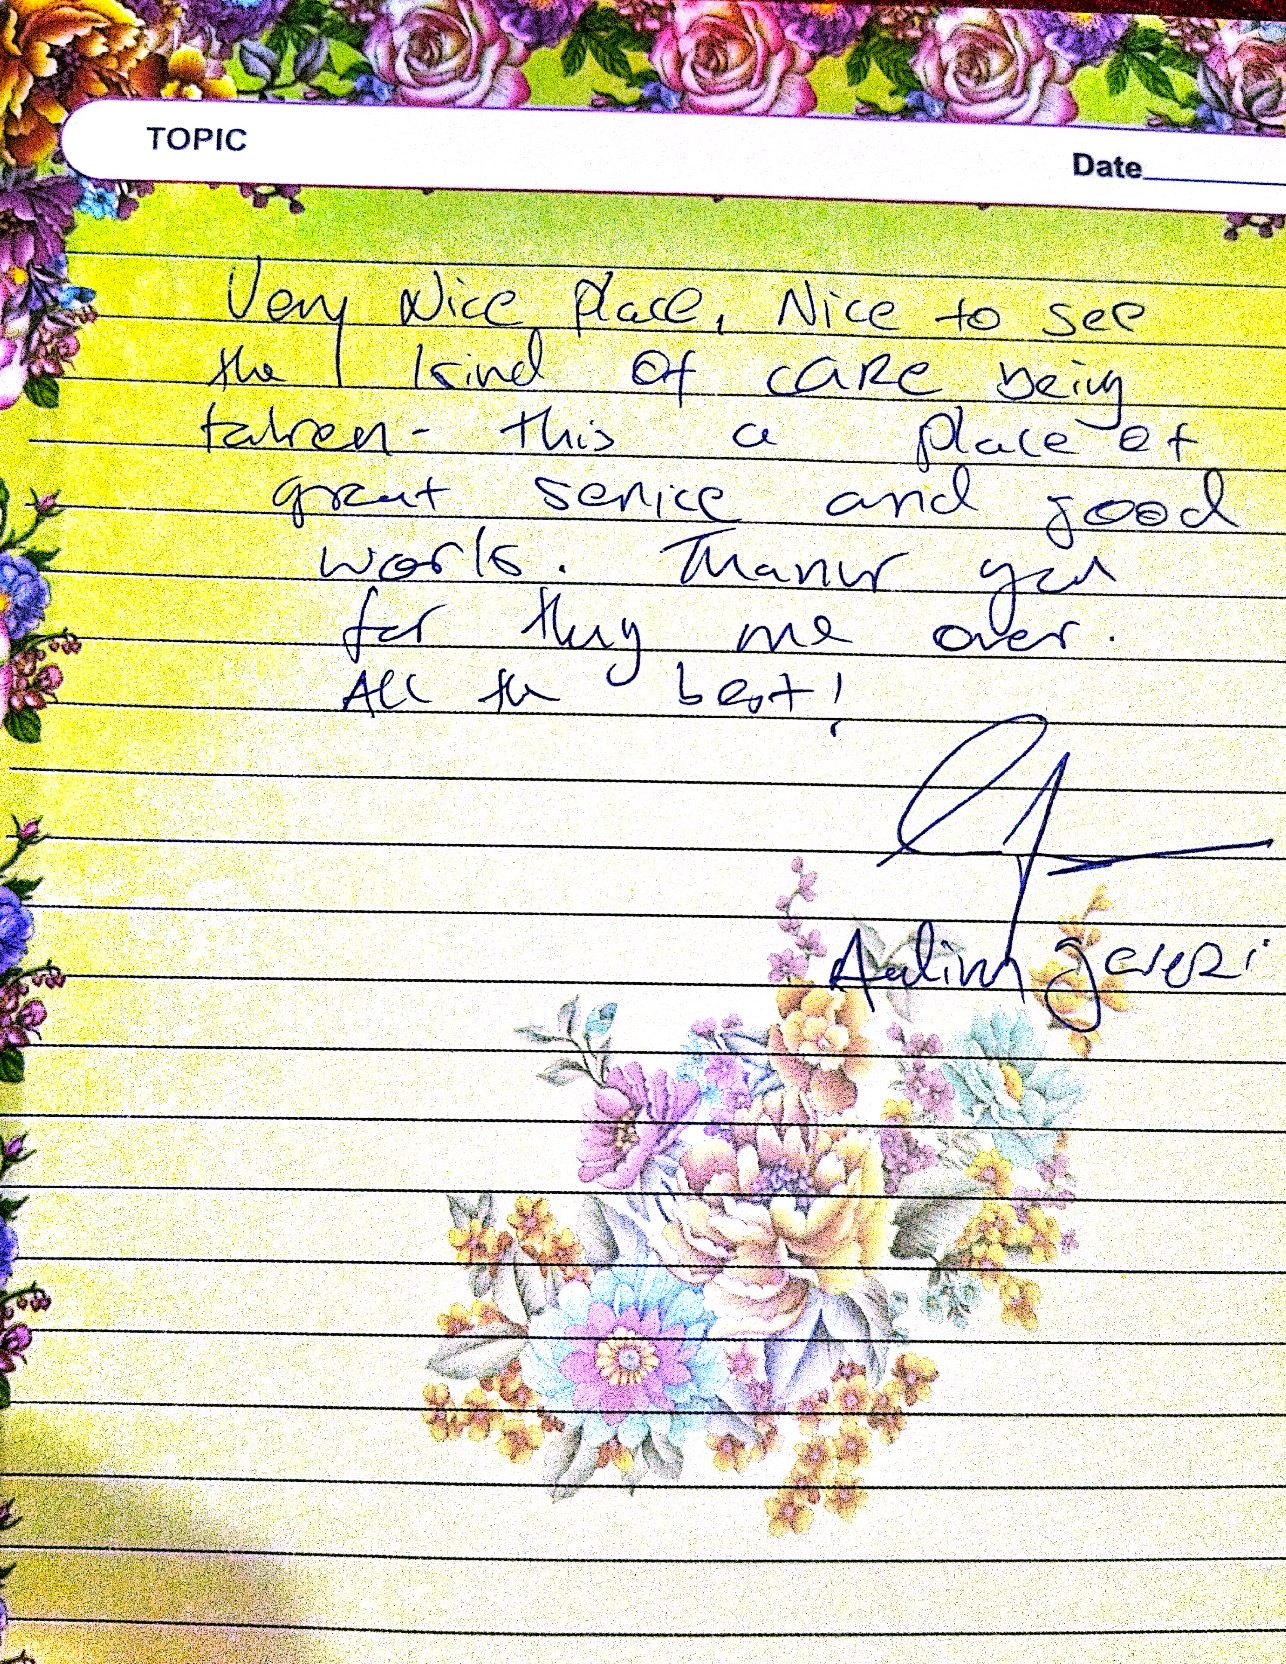 TOPIC
Date
Very Nice place, Nice to see
the kind of care being
taken - this a place of
great service and good
work. Thank you
for me over.
All the best!